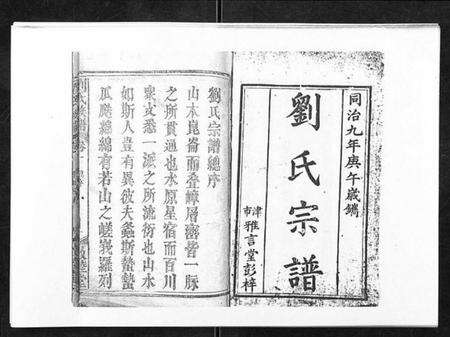 同治九年庚午歲鐫
劉氏宗譜
津市雅言堂彭梓
劉氏宗譜總序
山本崑崙而叠嶂層巒皆一脉
之所貫通也水原星宿而百川
衆支悉一派之所流衍也山水
如斯人豈有異彼夫螽斯蟄蟄
瓜瓞綿綿有若山之嵯峩羅列